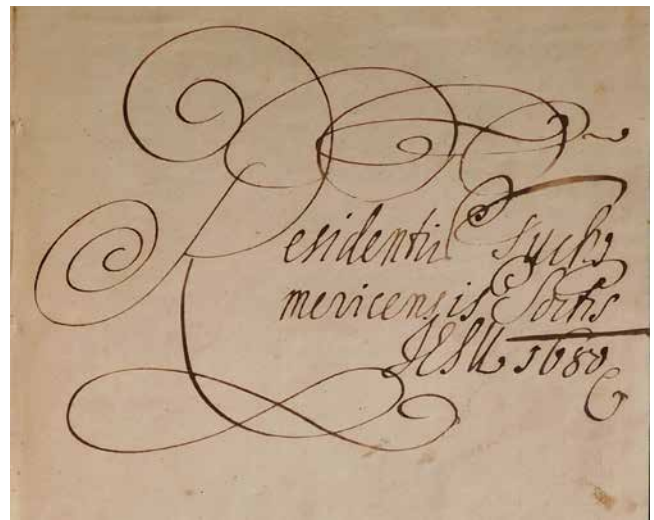 Residentiæ Tucho
mericensis Soctis
JESU 1680